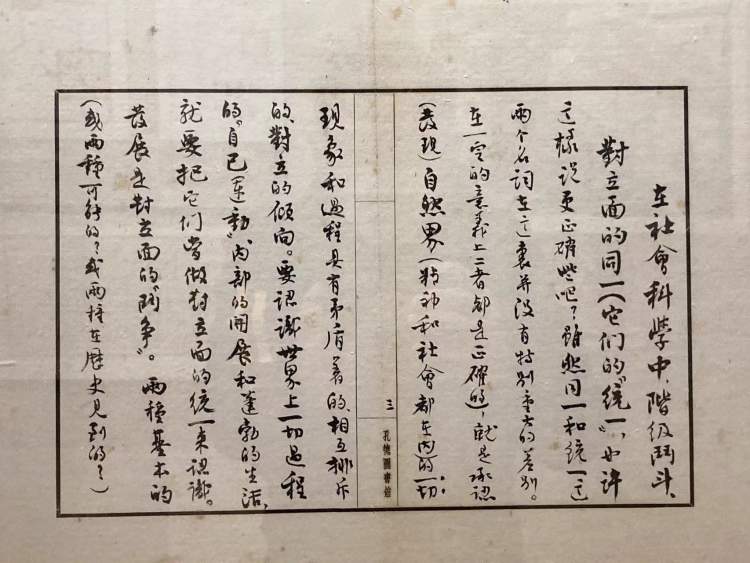 在社會科學中，階級鬥斗、
對立面的同一（它们的“統一”，也许
這樣说更正確些吧？雖然同一和統一這
兩个名詞在這裏并没有特别重大的差别。
在一定的意義上二者都是正確的），就是承認
（發現）自然界（精神和社會都在内）的一切
三
孔德圖書館
現象和過程具有矛盾着的、相互排斥
的、對立的傾向。要認識世界上一切過程
的“自己運動”，内部的開展和蓬勃的生活，
就要把它们當做對立面的統一来認識。
發展是對立面的“鬥争”。兩種基本的
（或兩種可能的？或兩種在歷史見到的？）